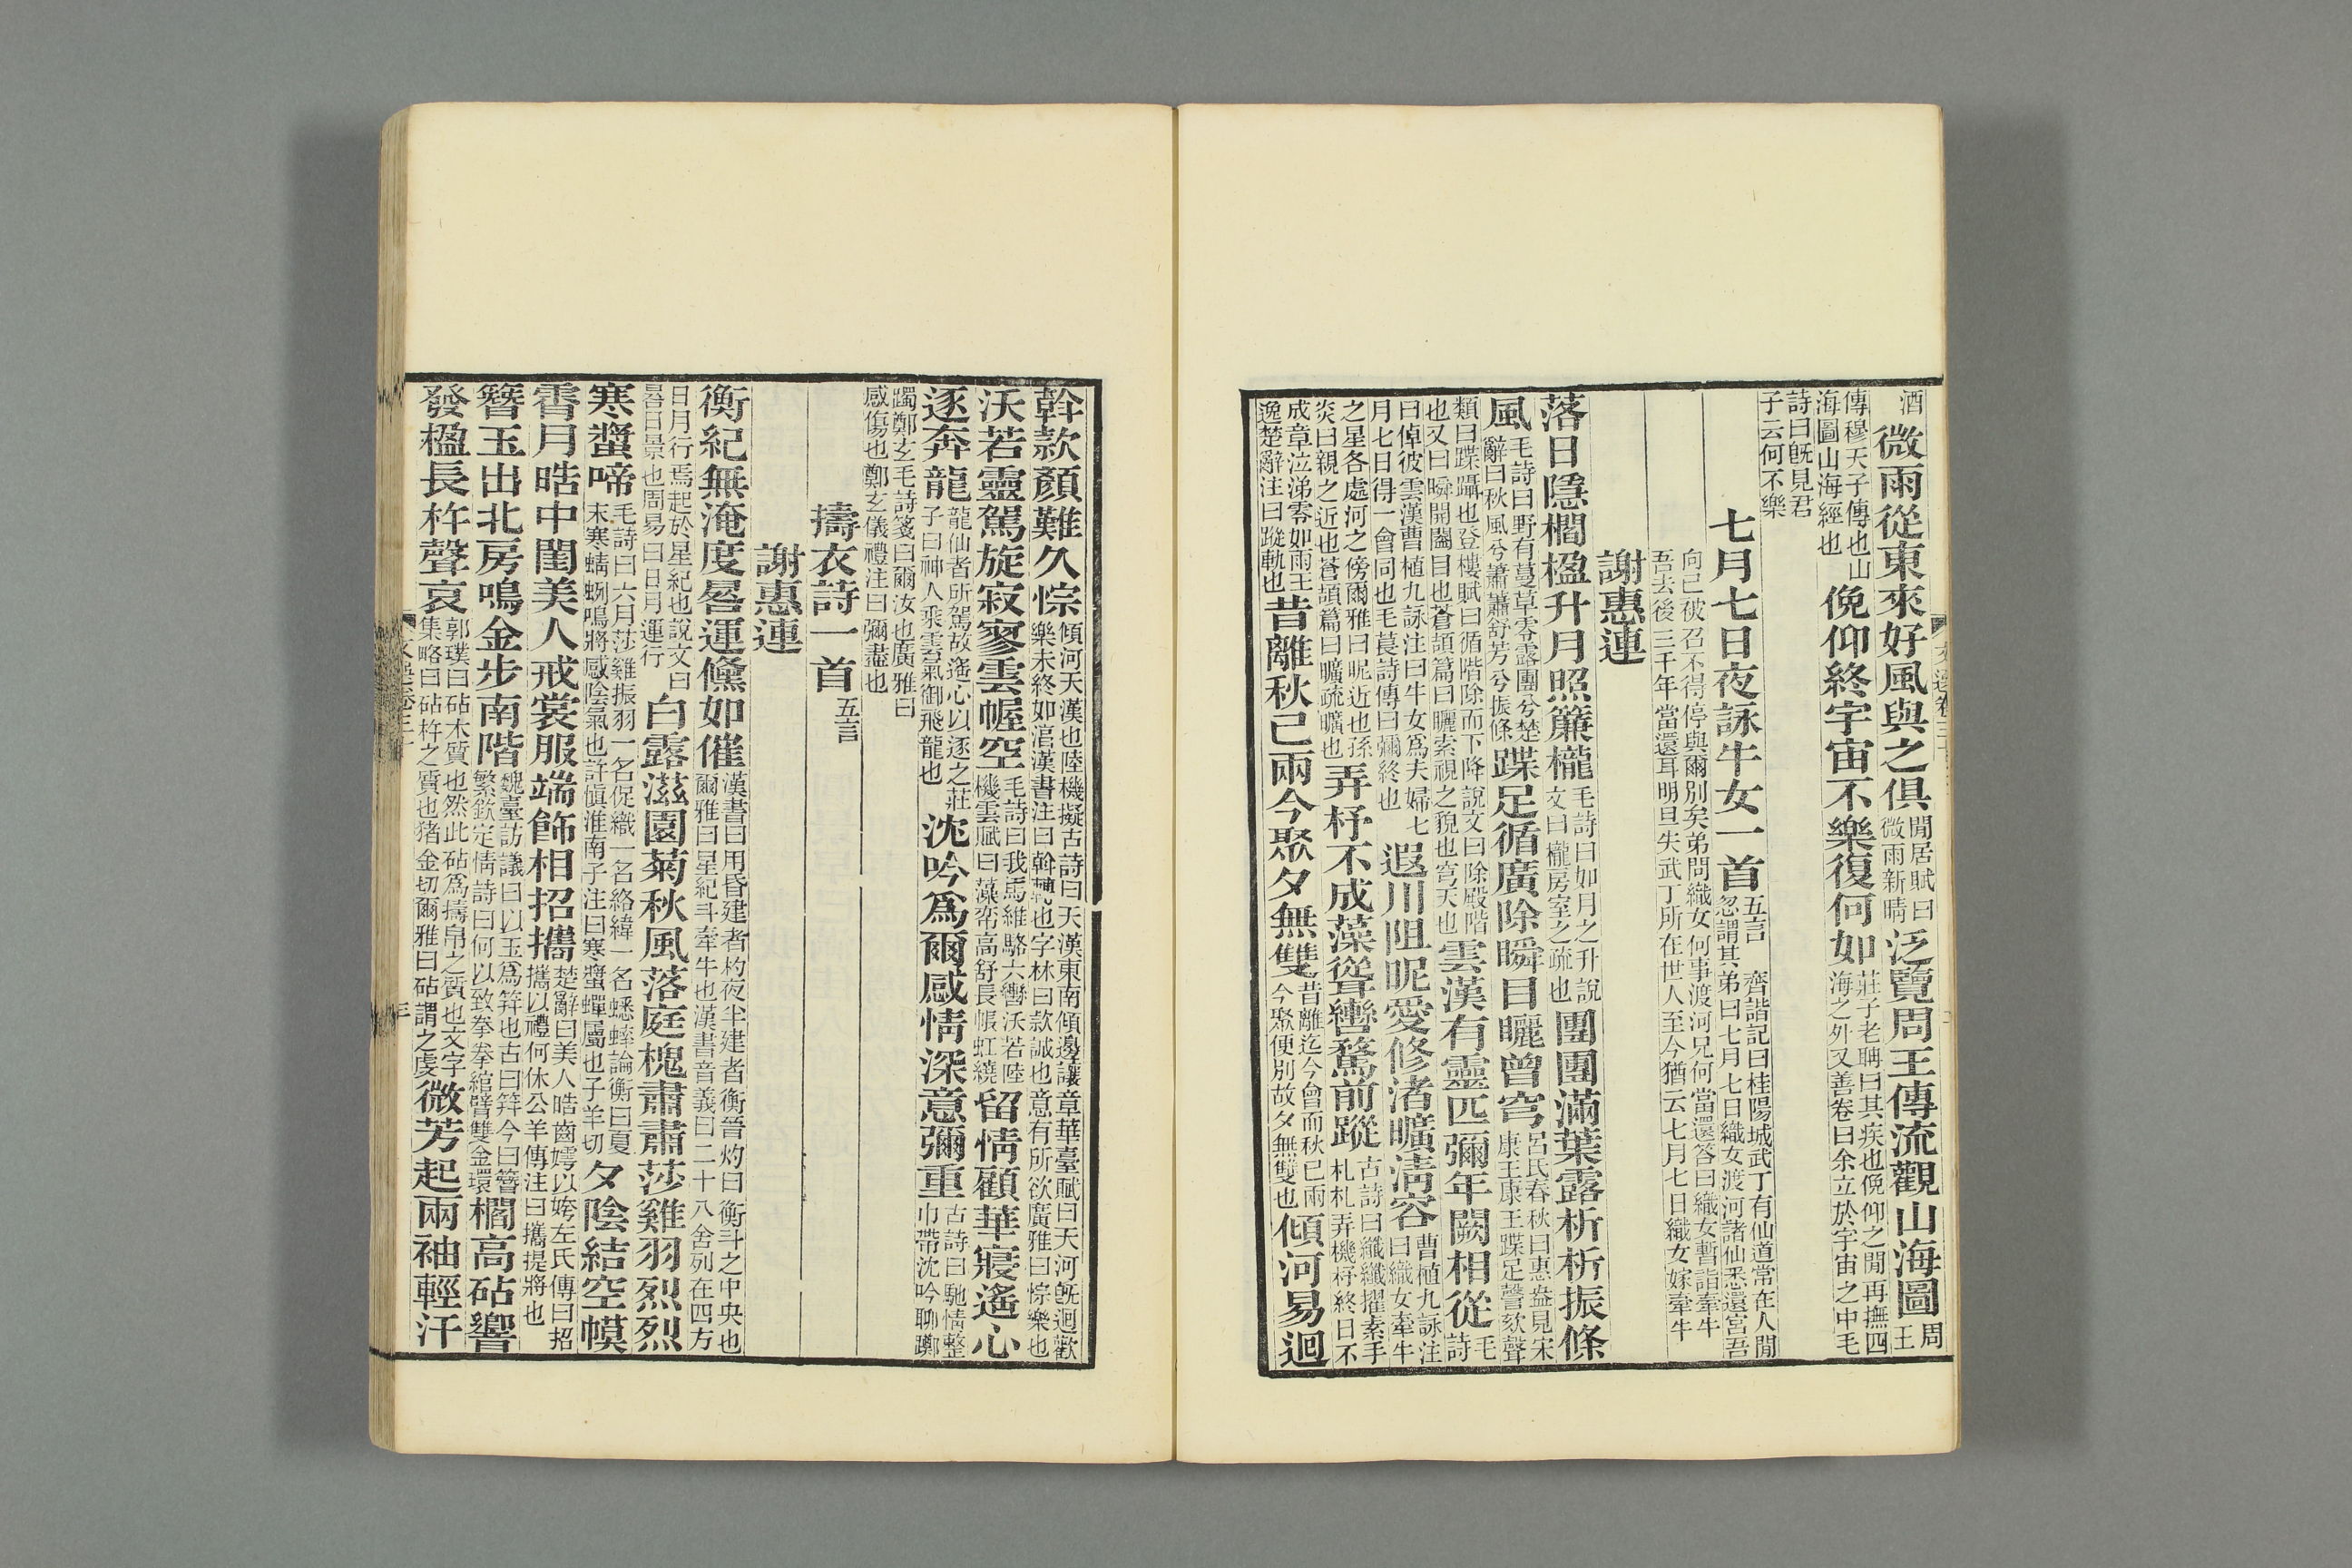 酒微雨從東來好風與之俱閒居賦曰微雨新晴泛覽周王傳流觀山海圖周王
傳穆天子傳也山海圖山海經也俛仰終宇宙不樂復何如莊子老聃曰其疾也俛仰之閒再撫四海之外又善卷曰余立於宇宙之中毛
詩曰旣見君子云何不樂
七月七日夜詠牛女一首五言 齊諧記曰桂陽城武丁有仙道常在人閒忽謂其弟曰七月七日織女渡河諸仙悉還宮吾
向已被召不得停與爾別矣弟問織女何事渡河兄何當還答曰織女暫詣牽牛吾去後三千年當還耳明旦失武丁所在世人至今猶云七月七日織女嫁牽牛
謝惠連
落日隱櫩楹升月照簾櫳毛詩曰如月之升說文曰櫳房室之疏也團團滿葉露析析振條
風毛詩曰野有蔓草零露團兮楚辭曰秋風兮蕭蕭舒芳兮振條蹀足循廣除瞬目矖曾穹呂氏春秋曰惠盎見宋康王康王蹀足謦欬聲
類曰蹀躡也登樓賦曰循階除而下降說文曰除殿階也又曰瞬開闔目也蒼頡篇曰矖索視之貌也穹天也雲漢有靈匹彌年闕相從毛詩
曰倬彼雲漢曹植九詠注曰牛女爲夫婦七月七日得一會同也毛萇詩傳曰彌終也遐川阻昵愛修渚曠淸容曹植九詠注曰織女牽牛
之星各處河之傍爾雅曰昵近也孫炎曰親之近也蒼頡篇曰曠疏曠也弄杼不成藻從聳轡騖前蹤古詩曰纖纖擢素手札札弄機杼終日不
成章泣涕零如雨王逸楚辭注曰蹤軌也昔離秋已兩今聚夕無雙昔離迄今會而秋已兩今聚便別故夕無雙也傾河易迴
斡款顏難久悰傾河天漢也陸機擬古詩曰天漢東南傾邊讓章華臺賦曰天河旣迴歡樂未終如淳漢書注曰斡轉也字林曰款誠也意有所欲廣雅曰悰樂也
沃若靈駕旋寂寥雲幄空毛詩曰我馬維駱六轡沃若陸機雲賦曰藻帟高舒長帳虹繞留情顧華寢遙心
逐奔龍龍仙者所駕故遙心以逐之莊子曰神人乘雲氣御飛龍也沈吟爲爾感情深意彌重古詩曰馳情整巾帶沈吟聊躑
躅鄭玄毛詩箋曰爾汝也廣雅曰感傷也鄭玄儀禮注曰彌盡也
擣衣詩一首五言
謝惠連
衡紀無淹度晷運儵如催漢書曰用昏建者杓夜半建者衡晉灼曰衡斗之中央也爾雅曰星紀斗牽牛也漢書音義曰二十八舍列在四方
日月行焉起於星紀也說文曰晷日景也周易曰日月運行白露滋園菊秋風落庭槐肅肅莎雞羽烈烈
寒螿啼毛詩曰六月莎雞振羽一名促織一名絡緯一名蟋蟀論衡曰夏末寒蜻蛚鳴將感陰氣也許愼淮南子注曰寒螿蟬屬也子羊切夕陰結空幙
霄月晧中閨美人戒裳服端飾相招攜楚辭曰美人晧齒嫮以姱左氏傳曰招攜以禮何休公羊傳注曰攜提將也
簪玉出北房鳴金步南階魏臺訪議曰以玉爲笄也古曰笄今曰簪繁欽定情詩曰何以致拳拳綰臂雙金環櫩高砧響
發楹長杵聲哀郭璞曰砧木質也然此砧爲擣帛之質也文字集略曰砧杵之質也猪金切爾雅曰砧謂之虔微芳起兩袖輕汗